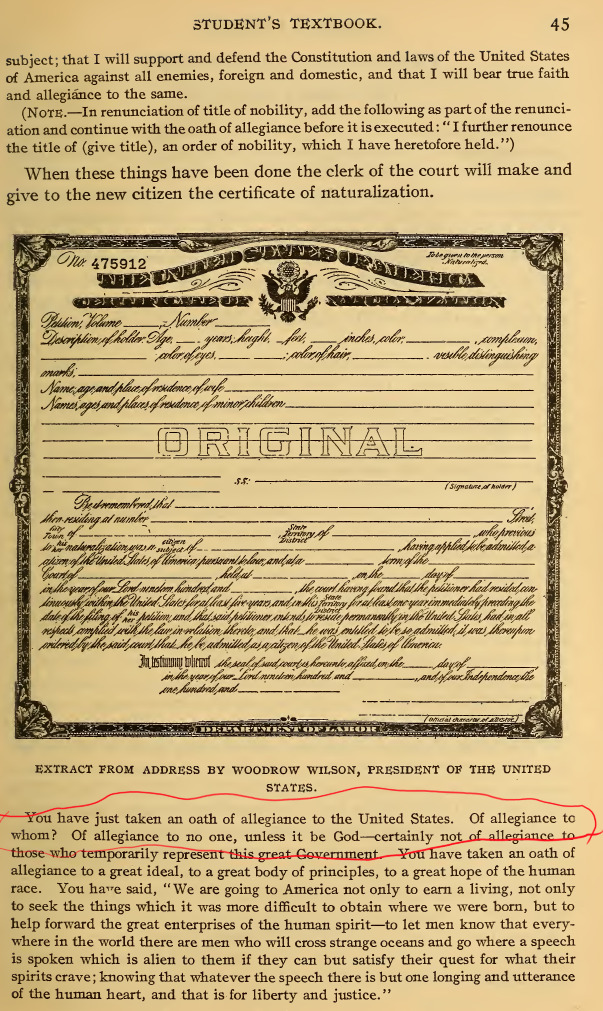 STUDENT'S TEXTBOOK. 45
subject; that I will support and defend the Constitution and laws of the United States
of America against all enemies, foreign and domestic, and that I will bear true faith
and allegiance to the same.
(NOTE.—In renunciation of title of nobility, add the following as part of the renunci-
ation and continue with the oath of allegiance before it is executed: "I further renounce
the title of (give title), an order of nobility, which I have heretofore held.")
When these things have been done the clerk of the court will make and
give to the new citizen the certificate of naturalization.
No. 475912
To be given to the person
Naturalized.
THE UNITED STATES OF AMERICA
CERTIFICATE OF NATURALIZATION
Petition, Volume , Number
Description of holder: Age, years; height, feet, inches; color, ; complexion,
; color of eyes, ; color of hair, ; visible distinguishing
marks,
Name, age and place of residence of wife
Names, ages and places of residence of minor children
ORIGINAL
S.S.:
(Signature of holder)
Be it remembered, that
then residing at number Street,
City Town of State Territory District of , who previous
to his her naturalization was a citizen subject of , having applied to be admitted a
citizen of the United States of America pursuant to law, and at a term of the
Court of held at on the day of
in the year of our Lord nineteen hundred and , the court having found that the petitioner had resided con-
tinuously within the United States for at least five years and in this State Territory District for at least one year immediately preceding the
date of the filing of his her petition, and that said petitioner intends to reside permanently in the United States, had in all
respects complied with the law in relation thereto, and that he was entitled to be so admitted, it was thereupon
ordered by the said court that he be admitted as a citizen of the United States of America.
In testimony whereof the seal of said court is hereunto affixed on the day of
in the year of our Lord nineteen hundred and , and of our Independence the
one hundred and
(Official character of attestor)
DEPARTMENT OF LABOR
EXTRACT FROM ADDRESS BY WOODROW WILSON, PRESIDENT OF THE UNITED
STATES.
You have just taken an oath of allegiance to the United States. Of allegiance to
whom? Of allegiance to no one, unless it be God—certainly not of allegiance to
those who temporarily represent this great Government. You have taken an oath of
allegiance to a great ideal, to a great body of principles, to a great hope of the human
race. You have said, "We are going to America not only to earn a living, not only
to seek the things which it was more difficult to obtain where we were born, but to
help forward the great enterprises of the human spirit—to let men know that every-
where in the world there are men who will cross strange oceans and go where a speech
is spoken which is alien to them if they can but satisfy their quest for what their
spirits crave; knowing that whatever the speech there is but one longing and utterance
of the human heart, and that is for liberty and justice."